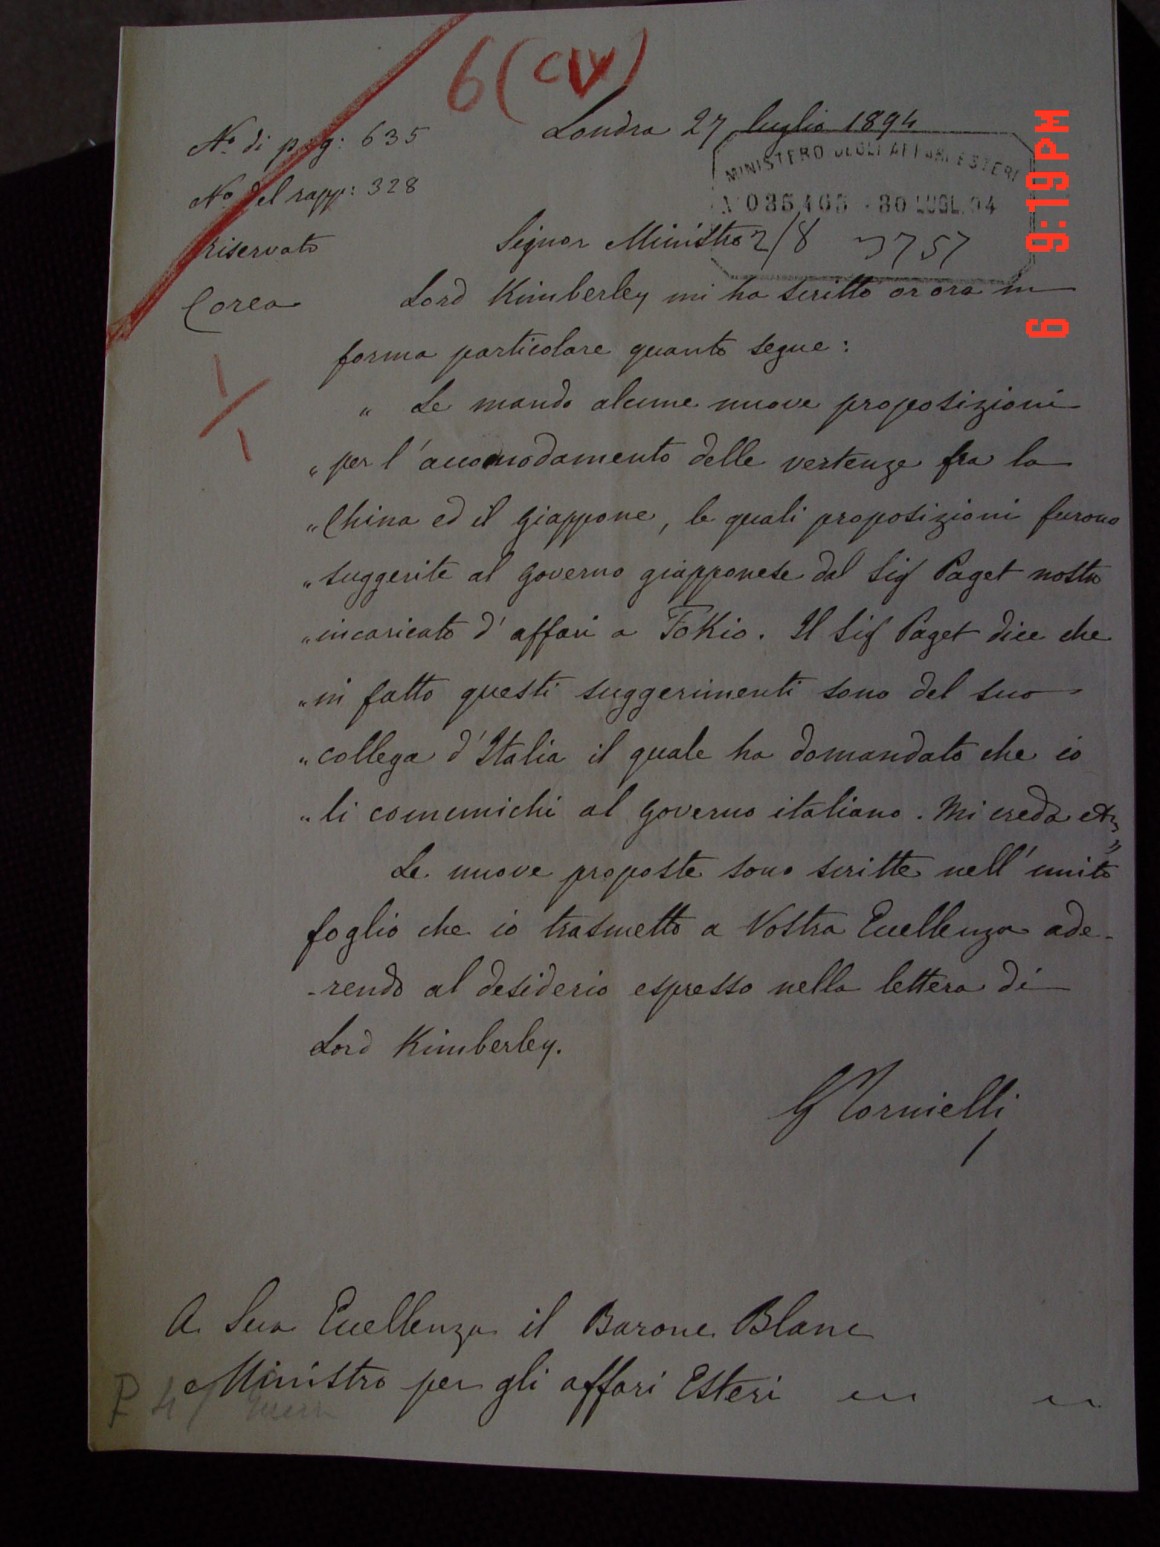 6 (CV)
Londra 27 luglio 1894
Nº di prog: 635
Nº del rapp: 328
riservato
Corea
MINISTERO DEGLI AFFARI ESTERI
30 LUGL. 94
2/8 3757
Signor Ministro
Lord Kimberley mi ha scritto or ora in
forma particolare quanto segue:
" Le mando alcune nuove proposizioni
" per l'accomodamento delle vertenze fra la
" China ed il Giappone, le quali proposizioni furono
" suggerite al Governo giapponese dal Sig Paget nostro
" incaricato d'affari a Tokio. Il Sig Paget dice che
" in fatto questi suggerimenti sono del suo
" collega d'Italia il quale ha domandato che io
" li comunichi al Governo italiano. Mi creda etz "
Le nuove proposte sono scritte nell'unito
foglio che io trasmetto a Vostra Eccellenza ade-
-rendo al desiderio espresso nella lettera di
Lord Kimberley.
G Tornielli
A Sua Eccellenza il Barone Blanc
Ministro per gli affari Esteri
6 9:19 PM